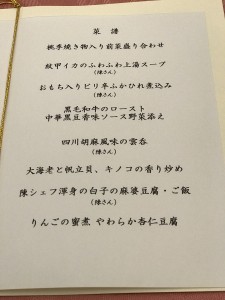 菜 譜
桃李焼き物入り前菜盛り合わせ
紋甲イカのふわふわ上湯スープ
(陳さん)
おもち入りピリ辛ふかひれ煮込み
(陳さん)
黒毛和牛のロースト
中華黒豆香味ソース野菜添え
四川胡麻風味の雲呑
(陳さん)
大海老と帆立貝、キノコの香り炒め
陳シェフ渾身の白子の麻婆豆腐・ご飯
(陳さん)
りんごの蜜煮 やわらか杏仁豆腐